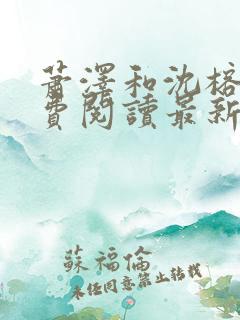 蕭澤和沈榕
費閱讀最新
蘇福倫
未經同意禁止轉載